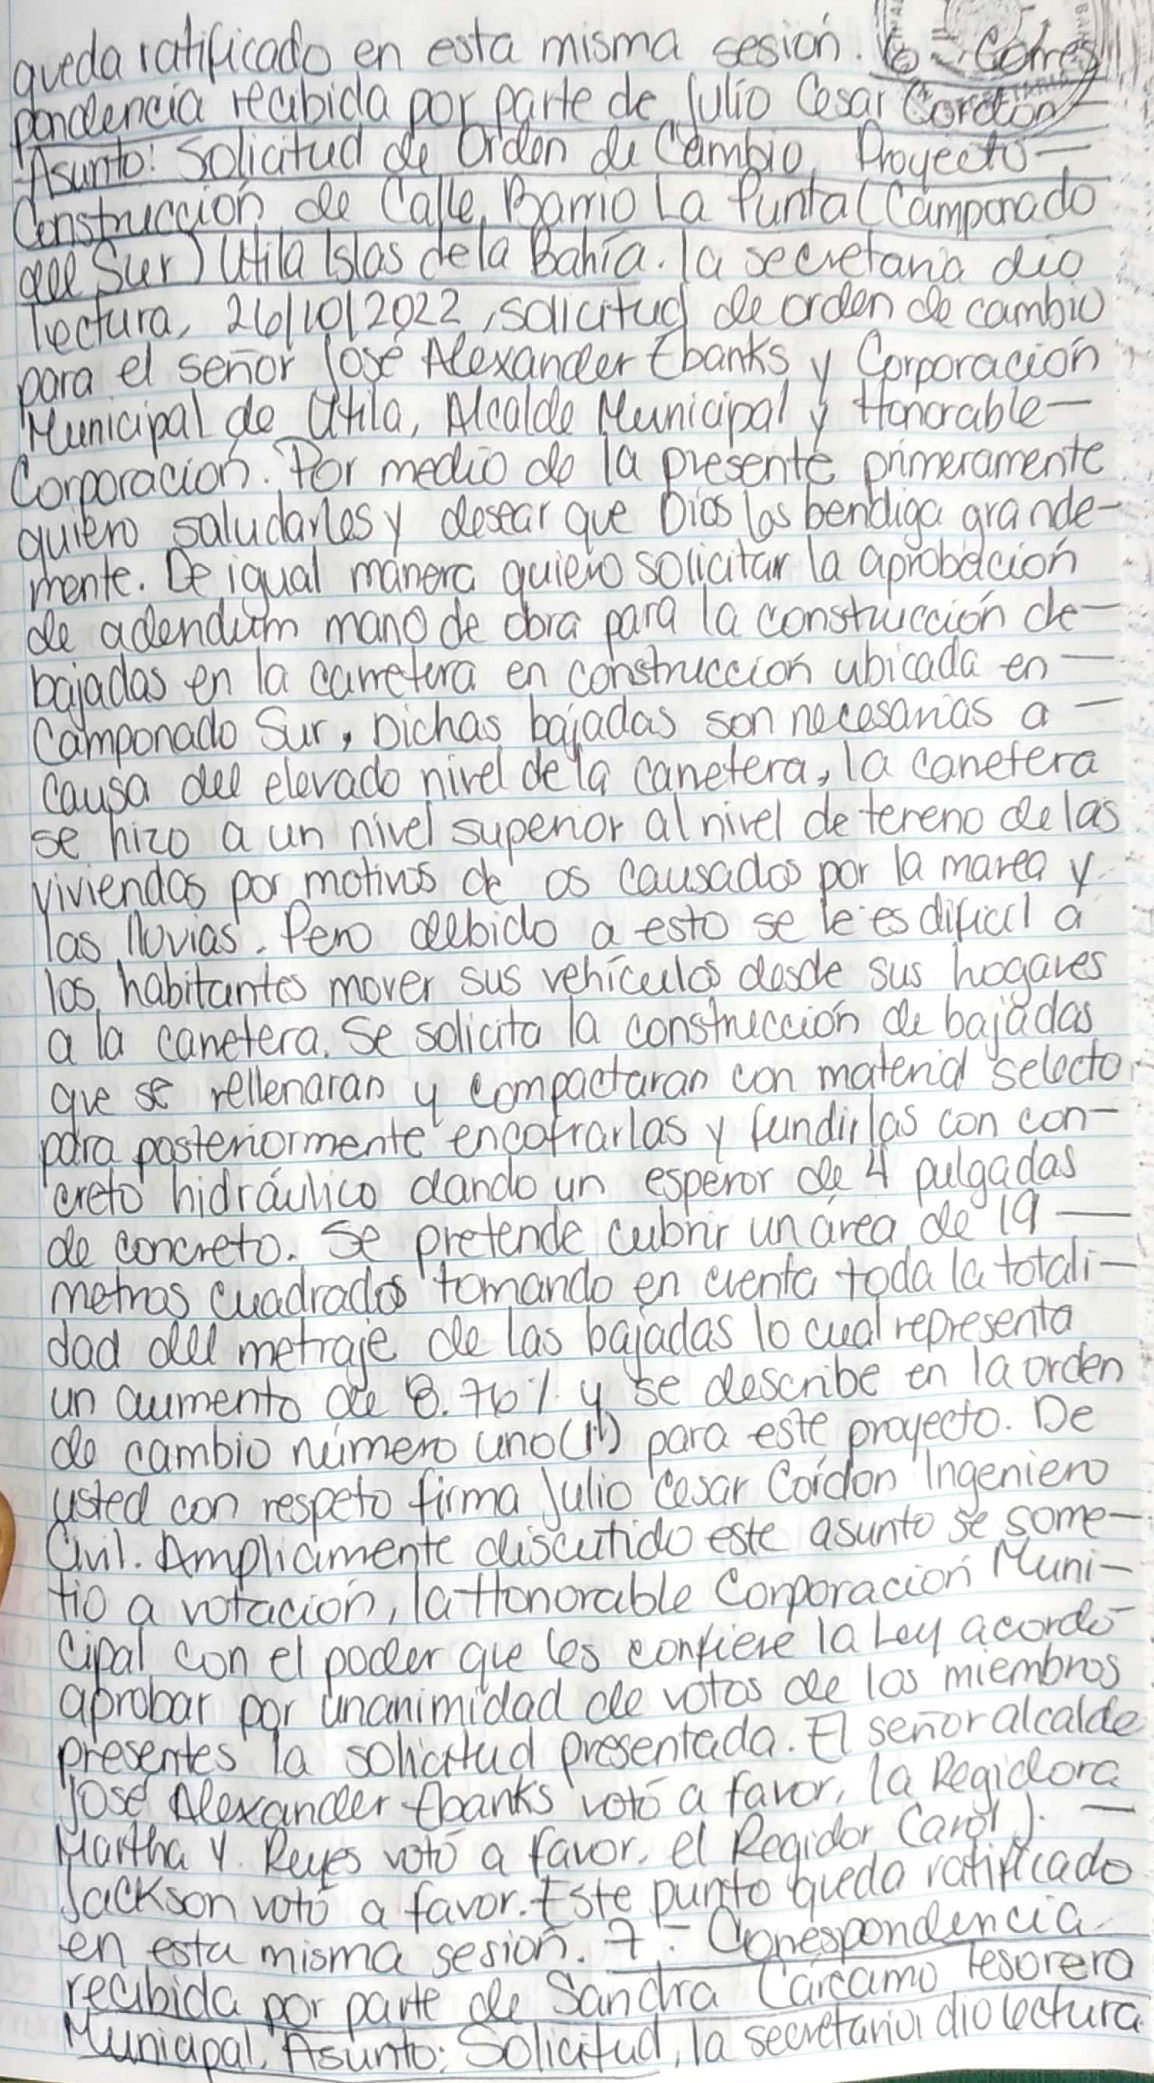 queda ratificado en esta misma sesión. 6.- Corres
pondencia recibida por parte de Julio Cesar Cordón
Asunto: Solicitud de Orden de Cambio, Proyecto
Construcción de Calle, Barrio La Punta (Camponado
del Sur) Utila Islas de la Bahía. la secretaria dio
lectura, 26/10/2022, solicitud de orden de cambio
para el señor José Alexander Ebanks y Corporación
Municipal de Utila, Alcalde Municipal y Honorable
Corporación. Por medio de la presente primeramente
quiero saludarles y desear que Dios los bendiga grande-
mente. De igual manera quiero solicitar la aprobación
de adendum mano de obra para la construcción de
bajadas en la carretera en construcción ubicada en
Camponado Sur, Dichas bajadas son necesarias a
causa del elevado nivel de la carretera, la carretera
se hizo a un nivel superior al nivel de tereno de las
viviendas por motivos de os causados por la marea y
las lluvias. Pero debido a esto se le es dificil a
los habitantes mover sus vehículos desde sus hogares
a la carretera. Se solicita la construcción de bajadas
que se rellenaran y compactaran con material selecto
para posteriormente encofrarlas y fundirlas con con-
creto hidráulico dando un esperor de 4 pulgadas
de concreto. Se pretende cubrir un área de 19
metros cuadrados tomando en cuenta toda la totali-
dad del metraje de las bajadas lo cual representa
un aumento de 8.76% y se describe en la orden
de cambio número uno (1) para este proyecto. De
usted con respeto firma Julio Cesar Cordon Ingeniero
Civil. Ampliamente discutido este asunto se some-
tio a votación, la Honorable Corporación Muni-
cipal con el poder que les confiere la Ley acordó
aprobar por unanimidad de votos de los miembros
presentes la solicitud presentada. El señor alcalde
José Alexander Ebanks votó a favor, la Regidora
Martha Y. Reyes votó a favor, el Regidor Carol J.
Jackson votó a favor. Este punto queda ratificado
en esta misma sesión. 7.- Correspondencia
recibida por parte de Sandra Cárcamo Tesorera
Municipal, Asunto: Solicitud, la secretaria dio lectura